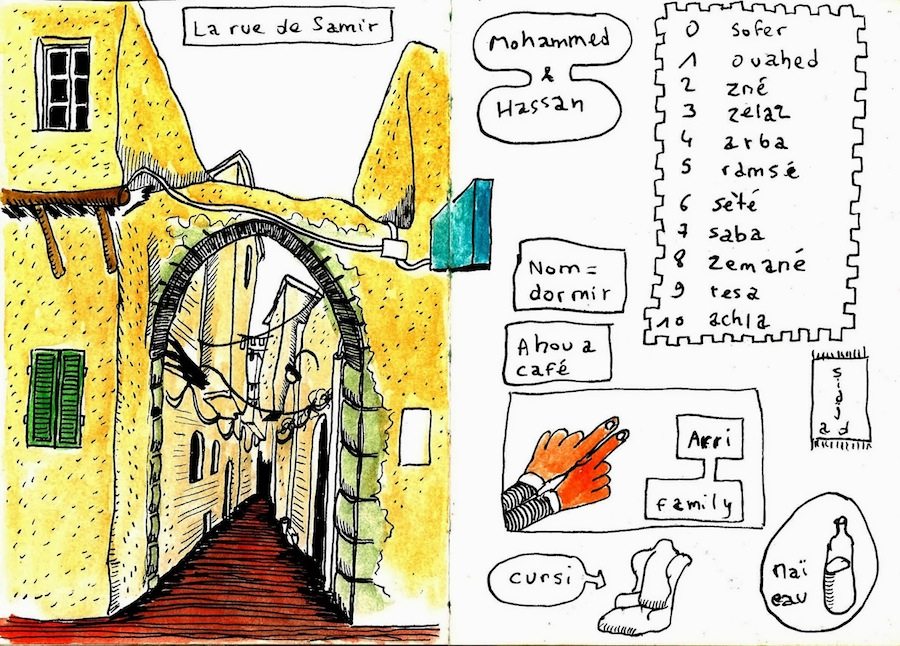 La rue de Samir
Mohammed
&
Hassan
0 sofer
1 ouahed
2 zné
3 zélaz
4 arba
5 ramsé
6 sété
7 saba
8 zemané
9 tesa
10 achla
Nom =
dormir
Ahoua
café
Arri
family
sidjad
cursi
maï
eau